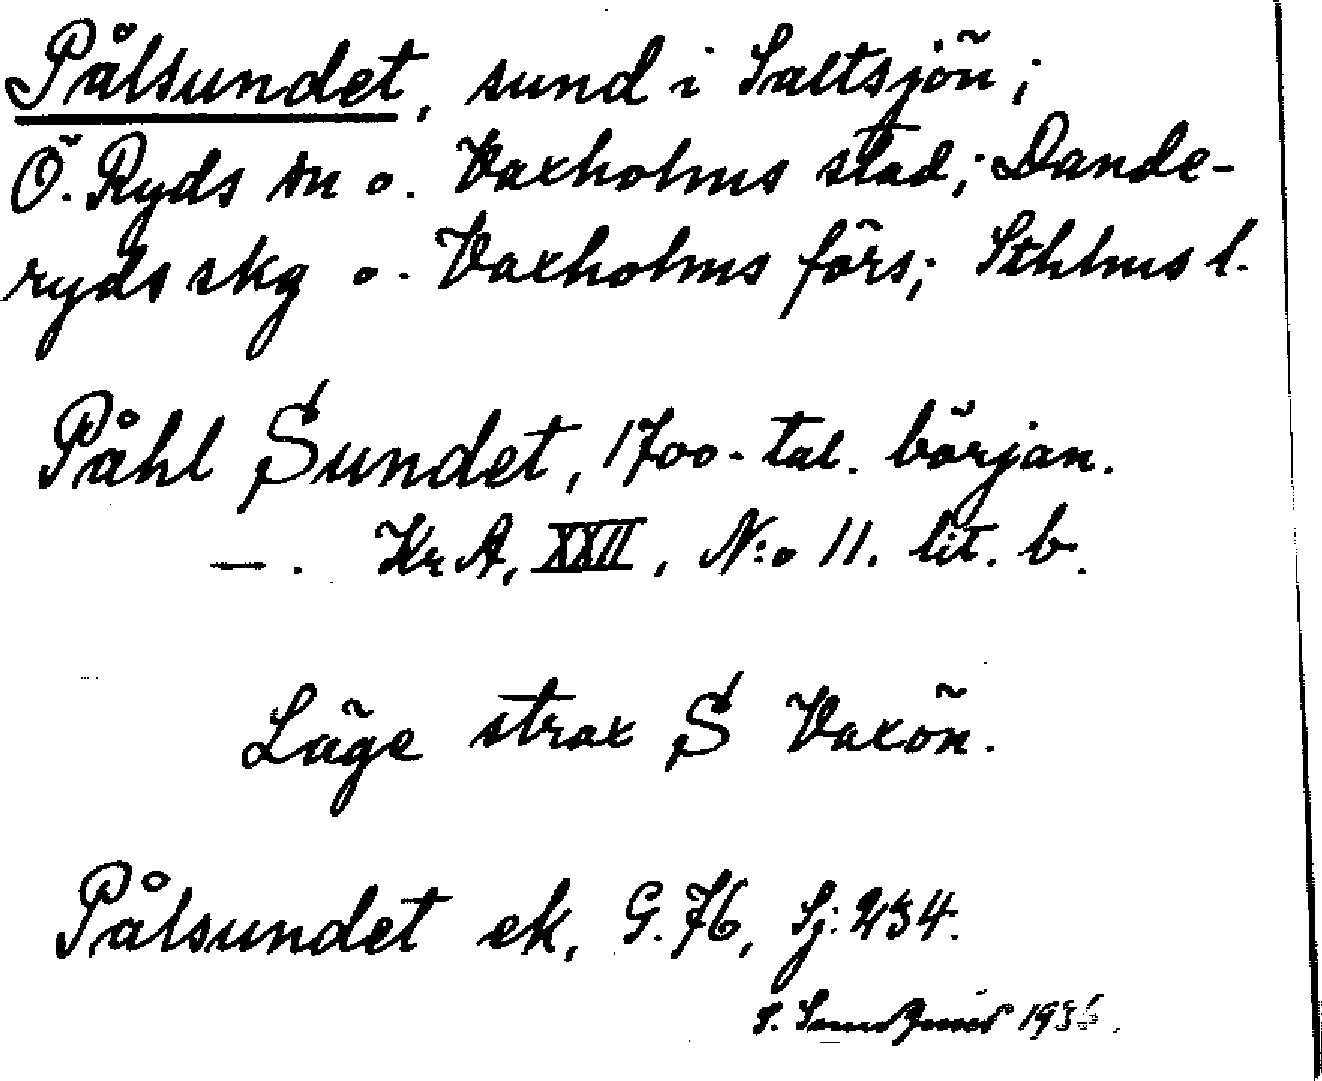 Pålsundet, sund i Saltsjön;
Ö. Ryds sn o. Vaxholms stad; Dande-
ryds skg o. Vaxholms förs; Sthlms l.
Påhl Sundet, 1700-tal. början.
—. Kr A, XXII, N:o 11. lit. b.
Läge strax S Vaxön.
Pålsundet ek, G. 76, Sj: 234.
S. 1936.